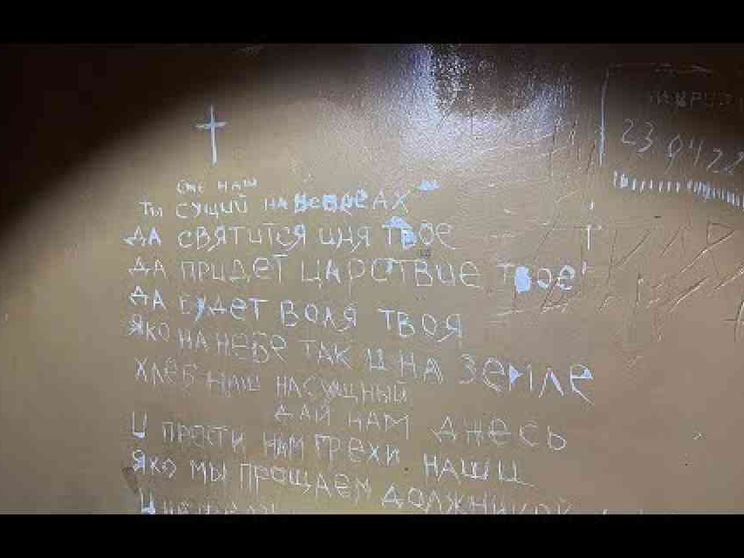 Оче наш
Ты сущий на небесах
Да святится имя твое
Да придет царствие твое
Да будет воля твоя
Яко на небе так и на земле
Хлеб наш насущный
Дай нам днесь
И прости нам грехи наши
Яко мы прощаем должником
23 04 22